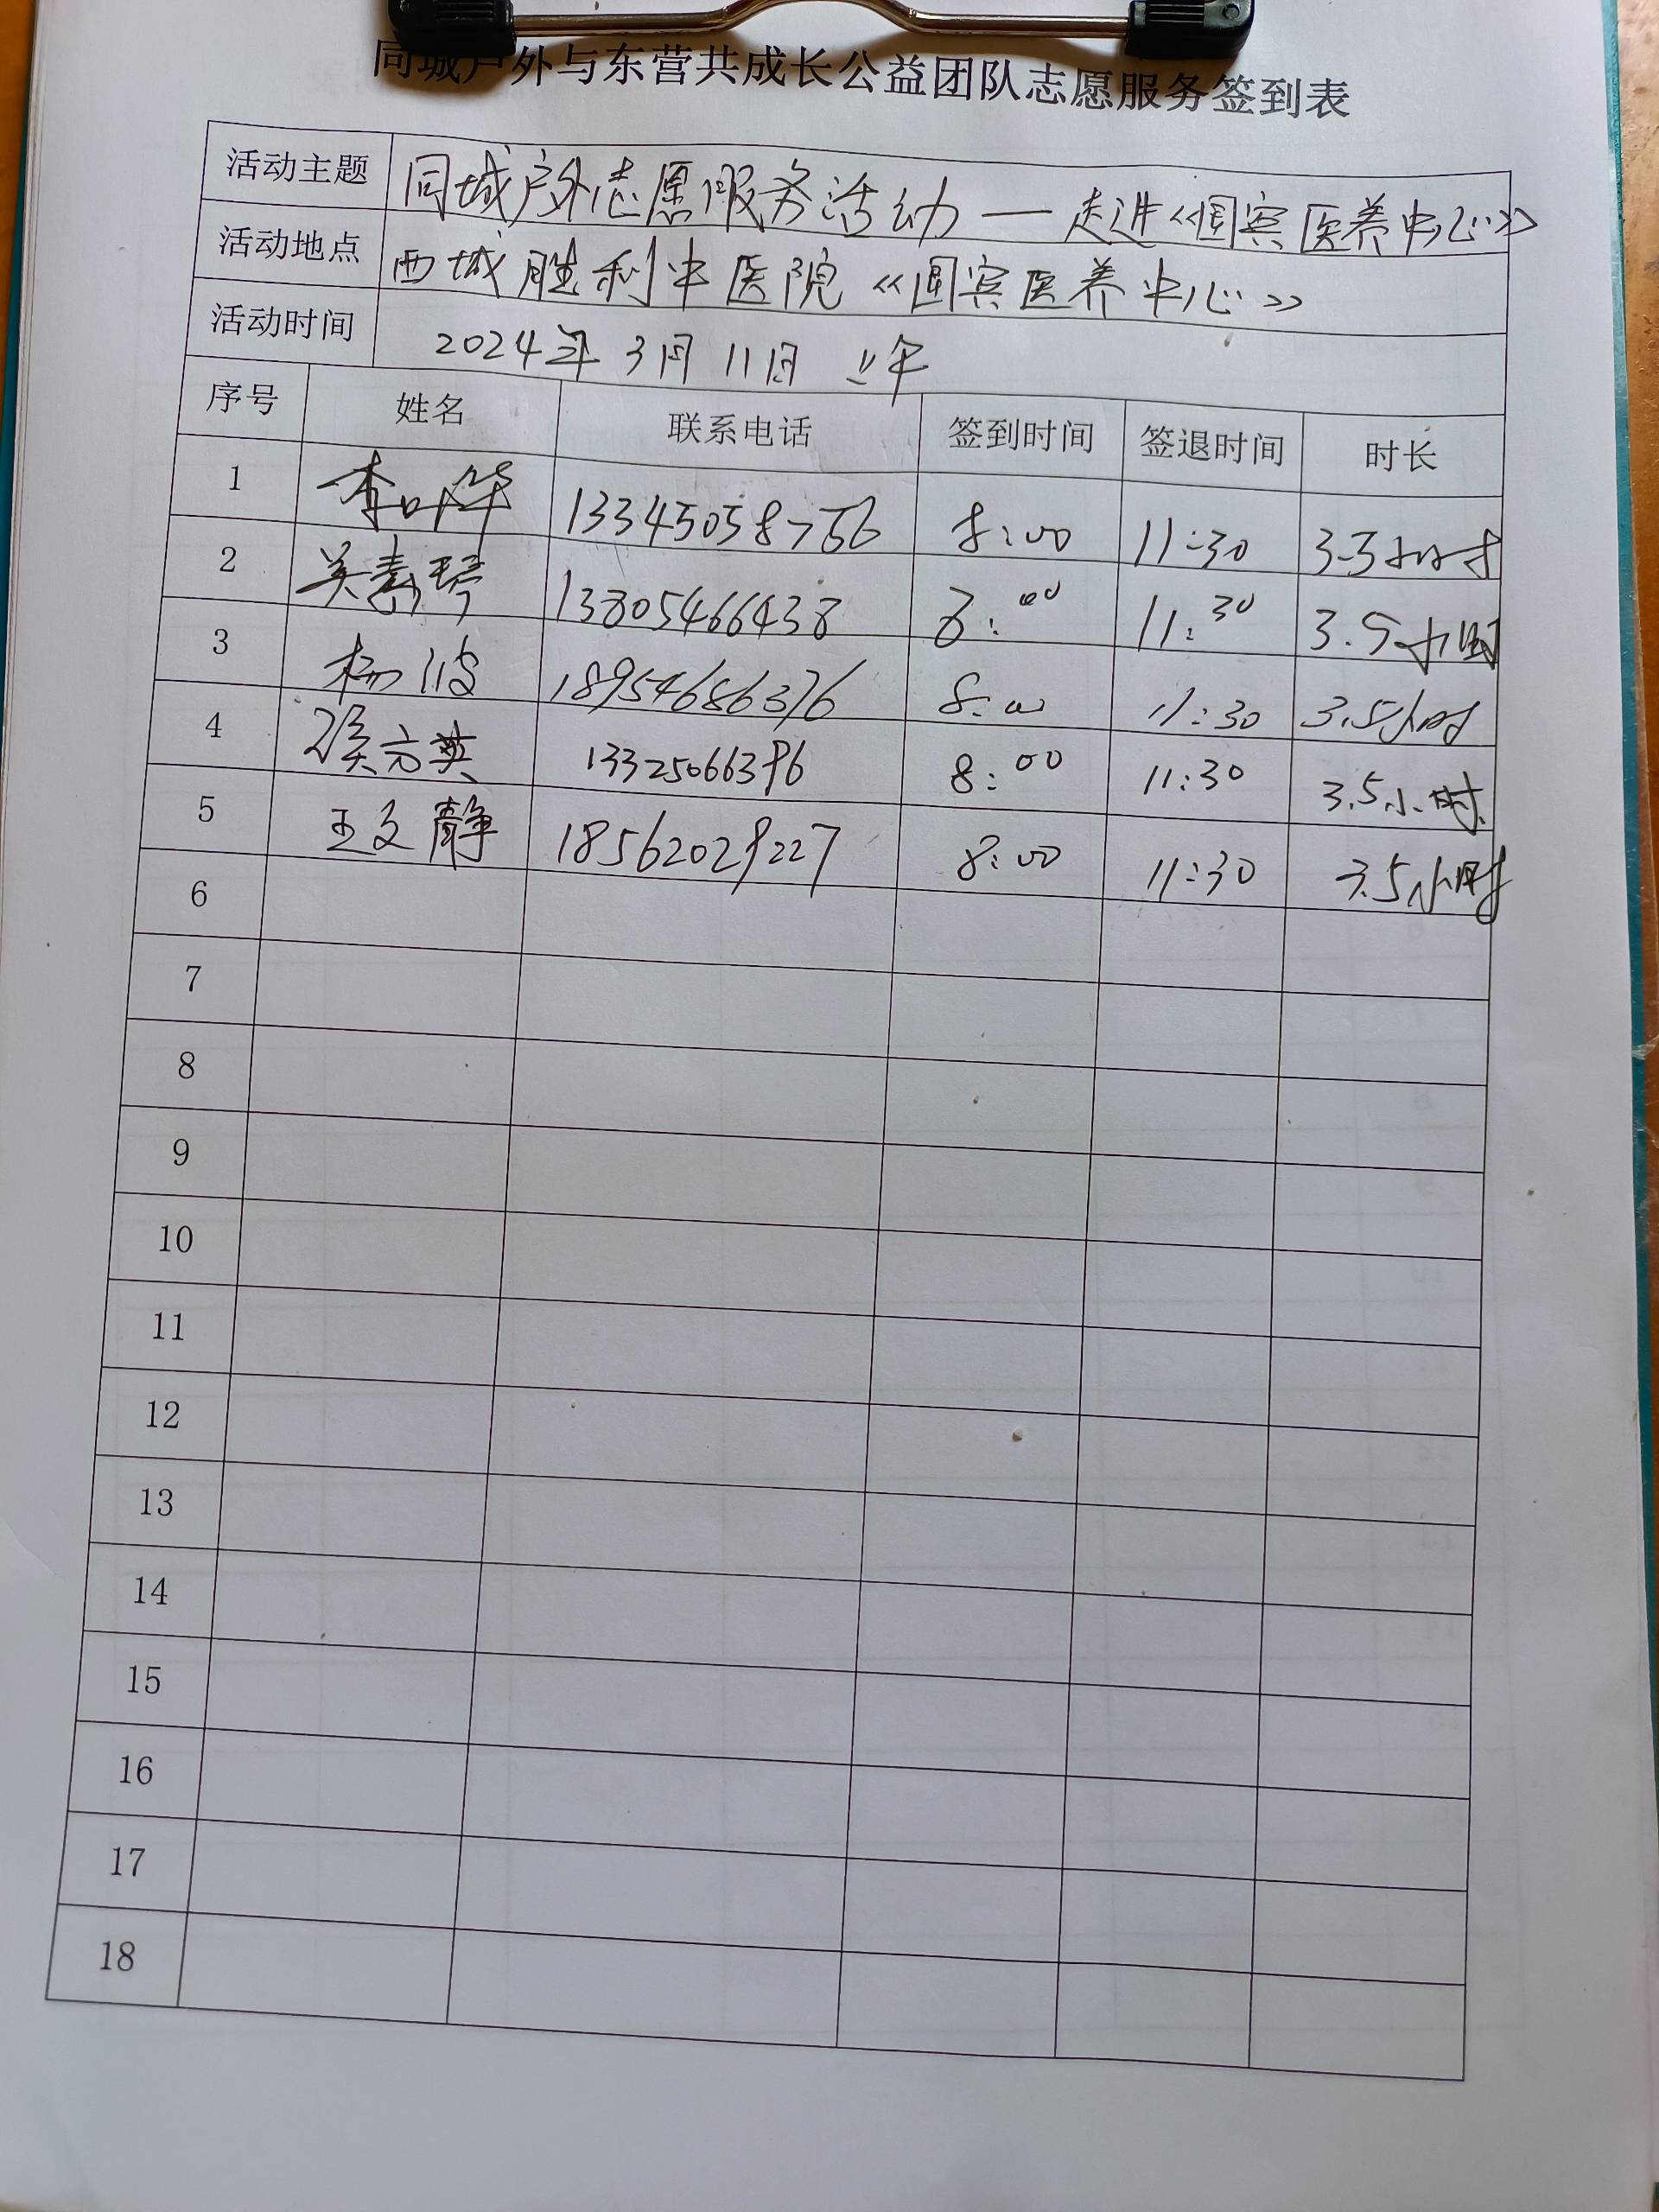 同城户外与东营共成长公益团队志愿服务签到表
活动主题 同城户外志愿服务活动——走进《国宾医养中心》
活动地点 西城胜利中医院《国宾医养中心》
活动时间 2024年3月11日 上午
序号 姓名 联系电话 签到时间 签退时间 时长
1 李叶华 13345058756 8:00 11:30 3.5小时
2 吴素琴 13805466438 8:00 11:30 3.5小时
3 杨波 18954686376 8:00 11:30 3.5小时
4 侯方英 13325066396 8:00 11:30 3.5小时
5 王文静 18562029227 8:00 11:30 3.5小时
6
7
8
9
10
11
12
13
14
15
16
17
18